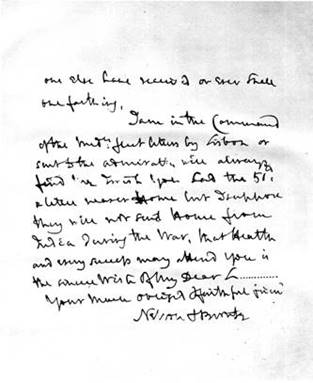 one else have received or ever shall
one farthing.
I am in the Command
of the Medn: fleet letters by Lisbon or
sent to the admiralty will always
find me I wish you had the 51:
a little nearer Home but I suppose
they will not send Home from
India During the War, that Health
and every success may attend you is
the sincere Wish of My Dear L............
Your Much Obliged & faithful friend
Nelson & Bronte